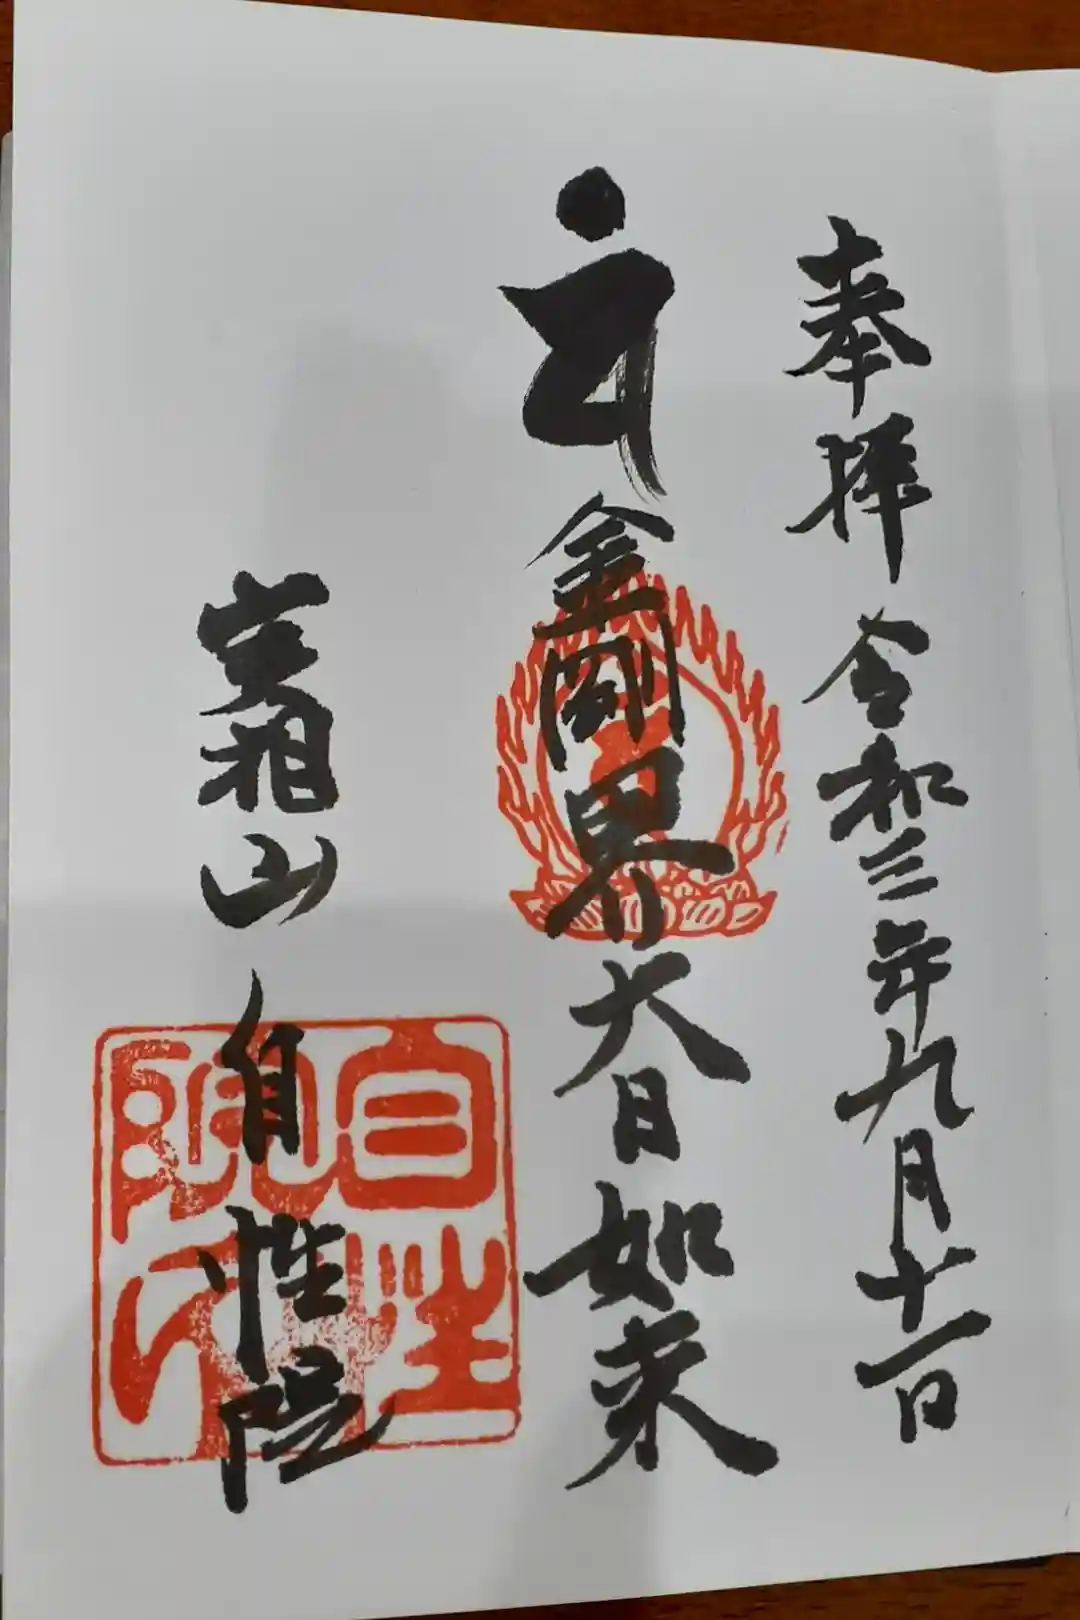 奉拝 令和三年九月十一日
𑖪𑖽 金剛界大日如来
実相山 自性院
自性院印